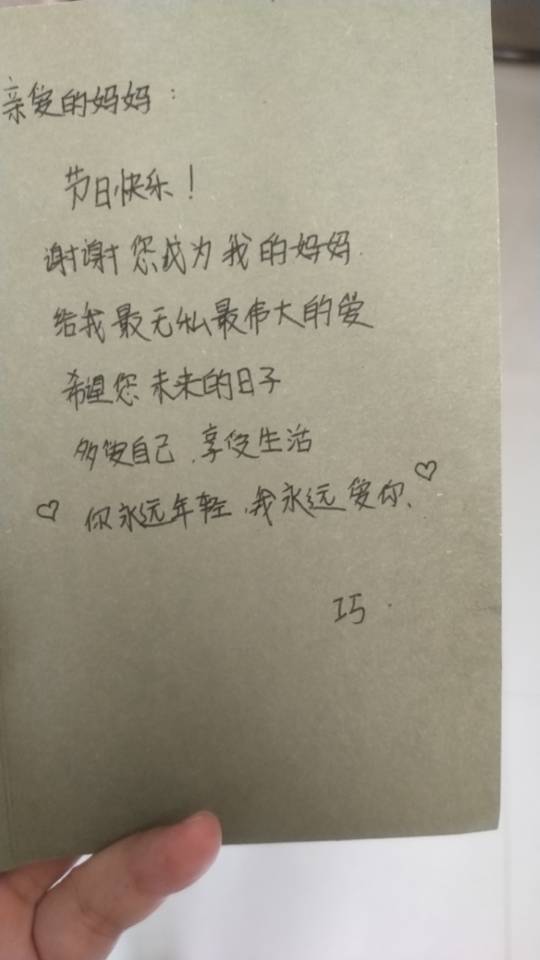 亲爱的妈妈:
节日快乐!
谢谢您成为我的妈妈.
给我最无私最伟大的爱
希望您未来的日子
多爱自己.享受生活
♡ 你永远年轻.我永远爱你. ♡
巧.